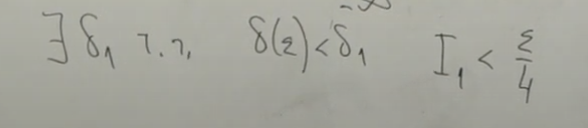 ∃ δ₁ т.ч. δ(ξ) < δ₁ I₁ < ε/4